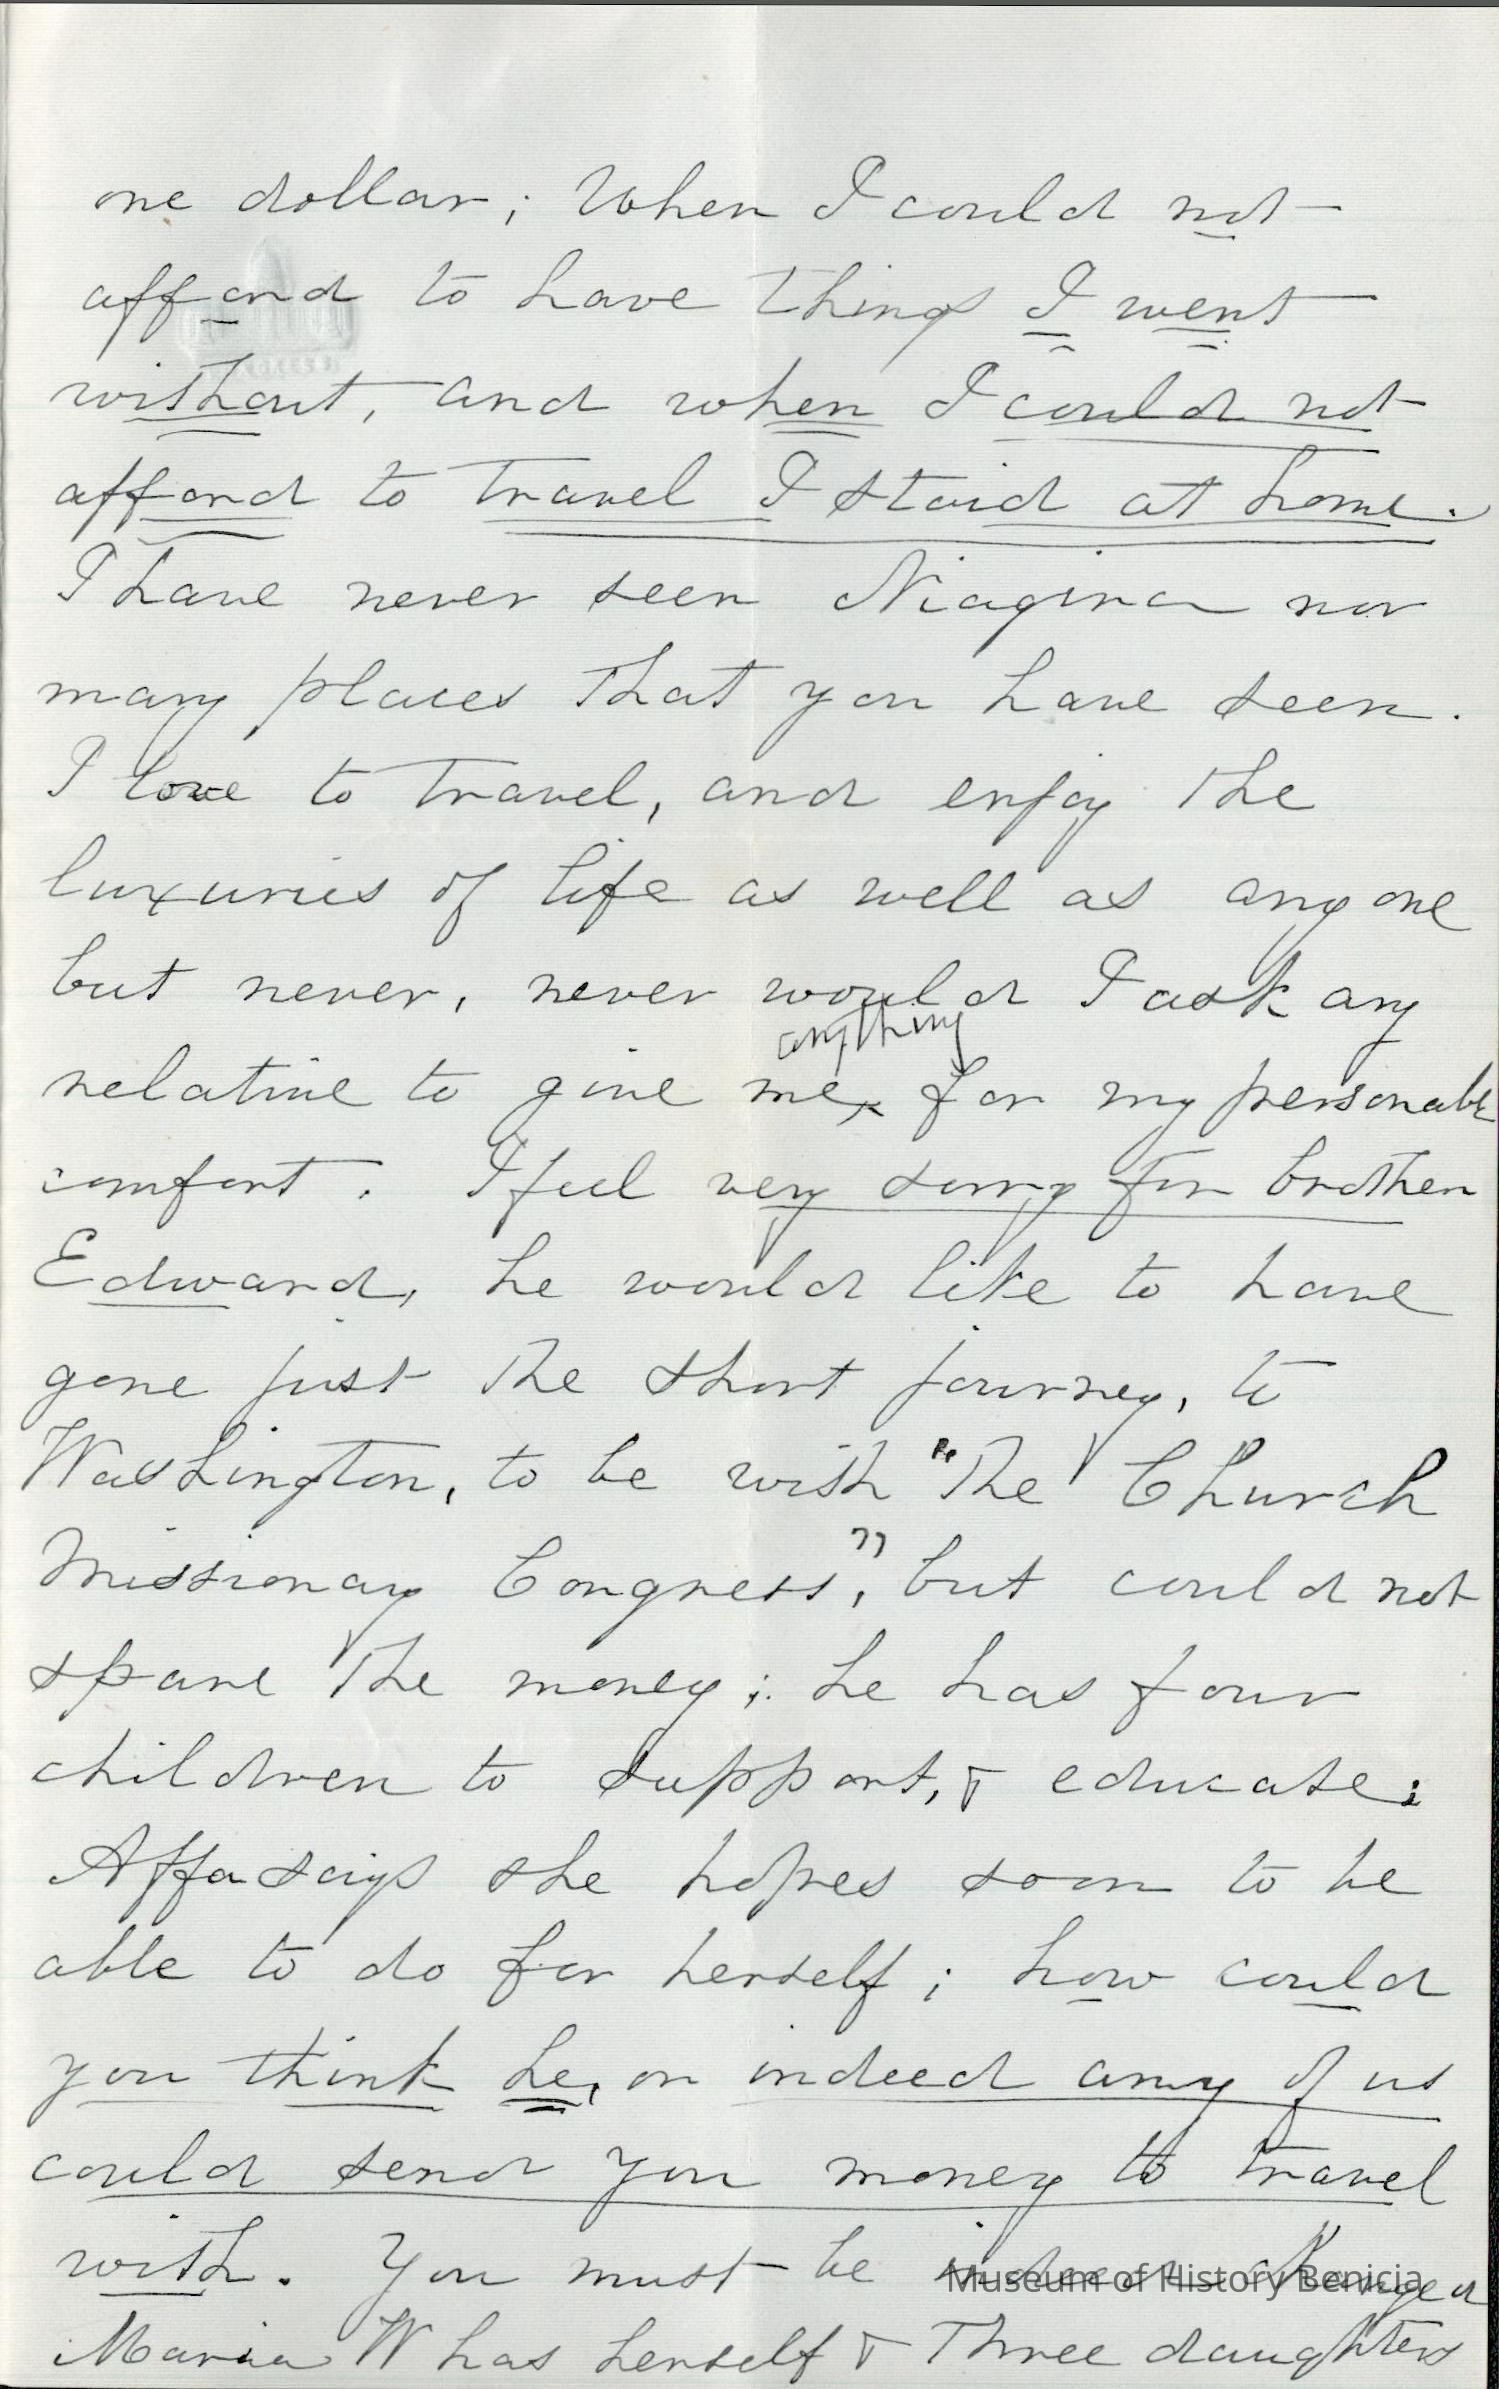 one dollar; When I could not
afford to have things I went
without, and when I could not
afford to travel I staid at home.
I have never seen Niagira nor
many places that you have seen.
I love to travel, and enjoy the
luxuries of life as well as any one
but never, never would I ask any
anything
relative to give me, for my personable
comfort. I feel very sorry for brother
Edward, he would like to have
gone just the short journey, to
Washington, to be with "The Church
Missionary Congress", but could not
spare the money; he has four
children to support, & educate;
Affa says she hopes soon to be
able to do for herself; how could
you think he, or indeed any of us
could send you money to travel
with. You must be indeed changed
Maria W has herself & Three daughters
Museum of History Benicia